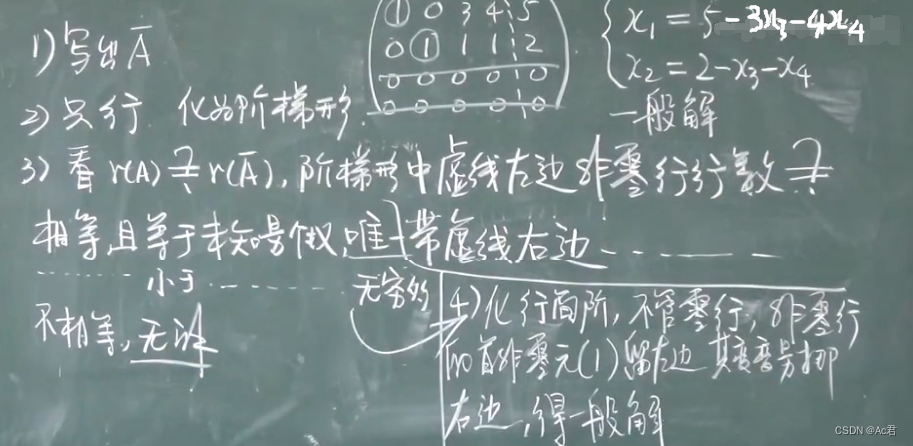 1) 写出Ā
① 0 3 4 5
0 ① 1 1 2
0 0 0 0 0
0 0 0 0 0
x₁ = 5 - 3x₃ - 4x₄
x₂ = 2 - x₃ - x₄
一般解
2) 只行 化为阶梯形.
3) 看 r(A) ≟ r(Ā), 阶梯形中虚线左边非零行行数 ≟
带虚线右边 ------
相等,且等于未知量个数,唯一
------ 小于 ------ 无穷多
不相等,无解
4) 化行简阶,不管零行,非零行
的首非零元(1)留左边 其变变号挪
右边,得一般解
CSDN @Ac君